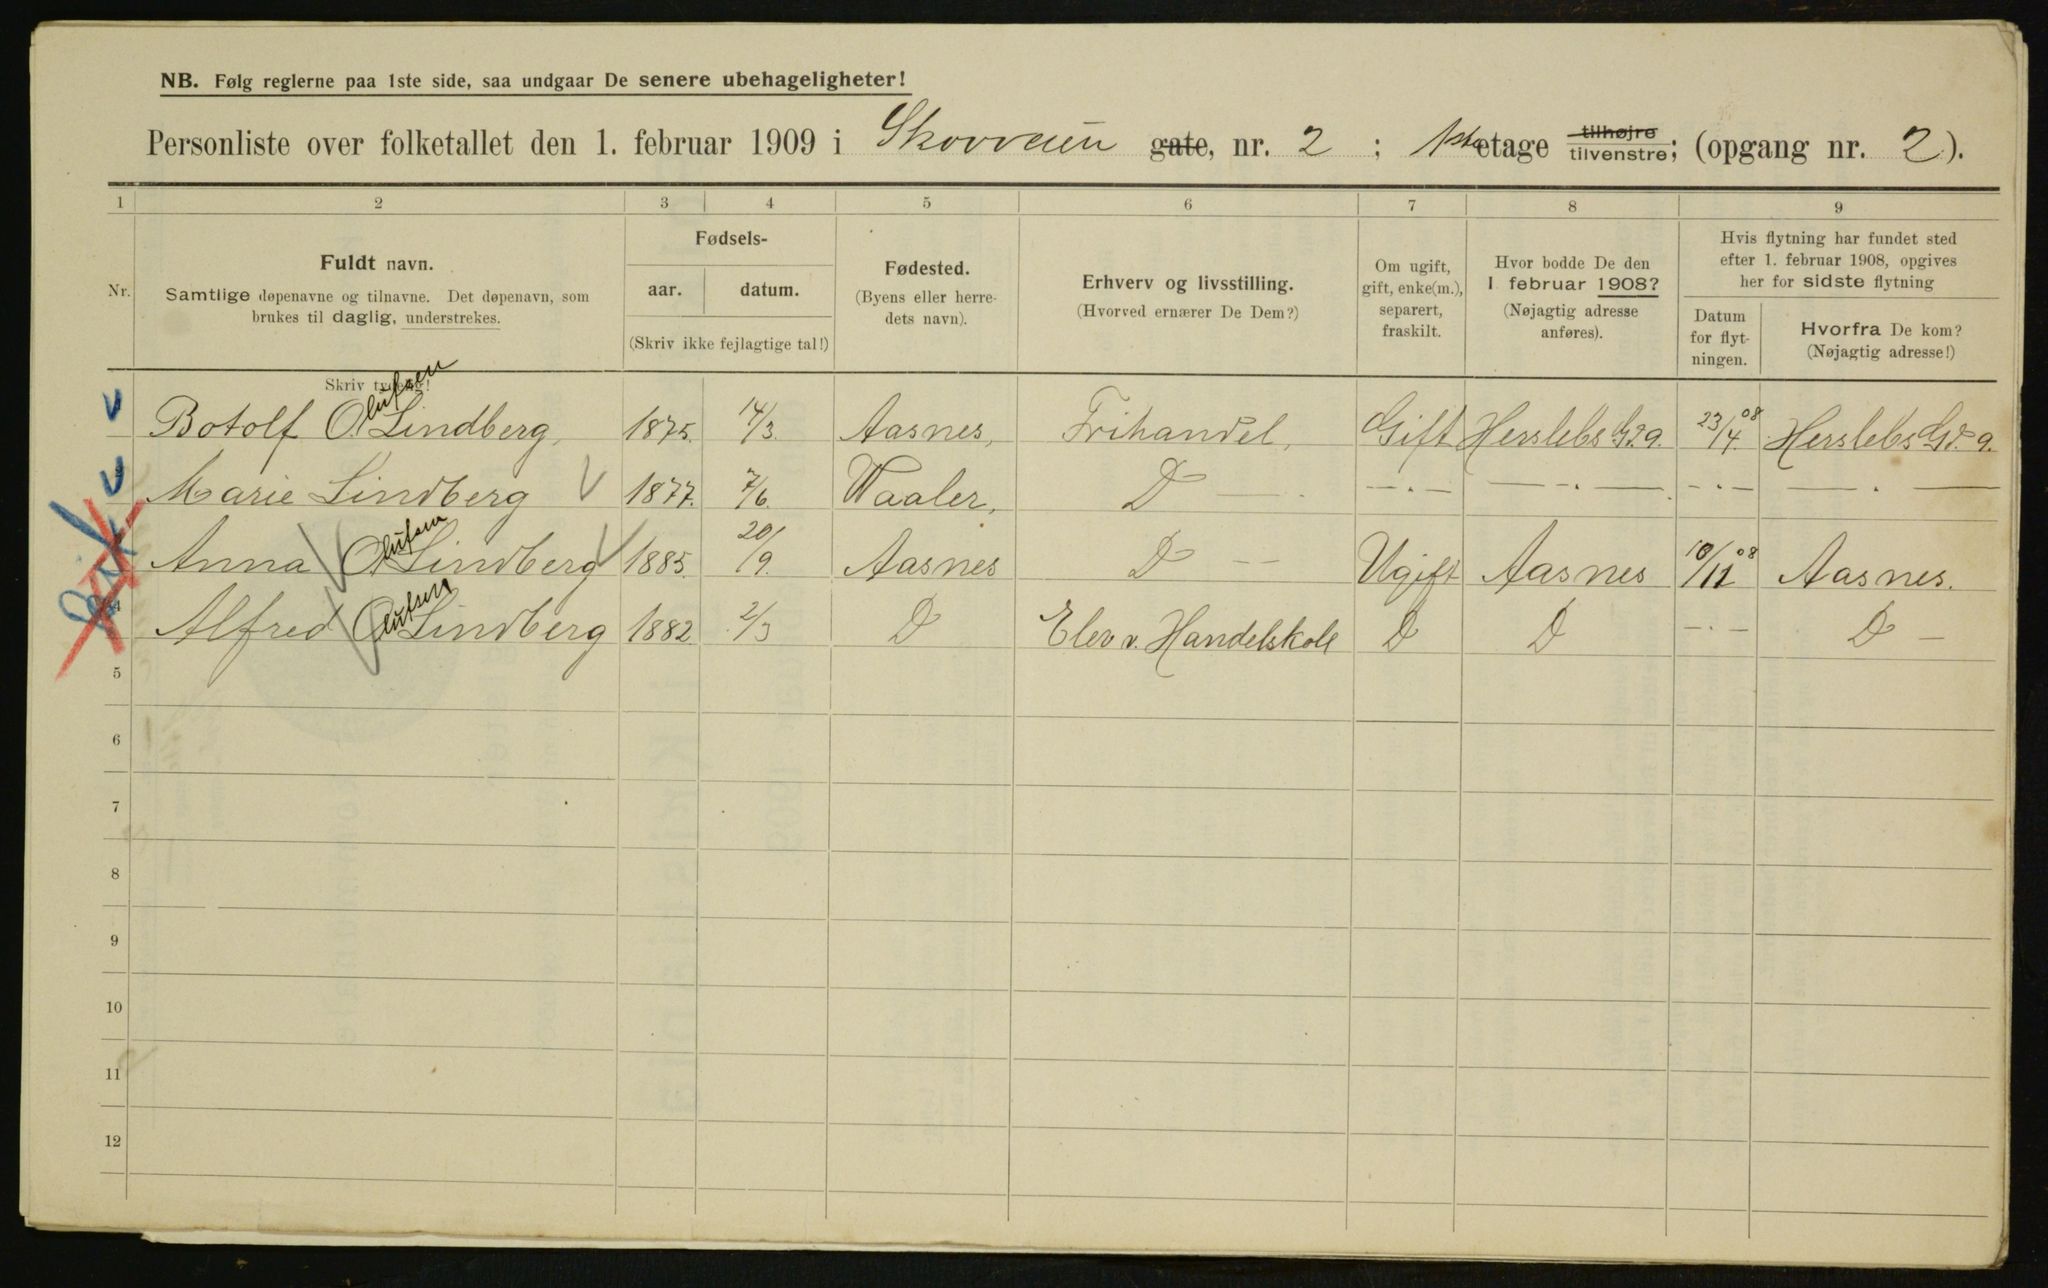 NB. Følg reglerne paa 1ste side, saa undgaar De senere ubehageligheter!
Personliste over folketallet den 1. februar 1909 i Skovveien gate, nr. 2 ; 1ste etage tilhøjre tilvenstre; (opgang nr. 2).
1 2 3 4 5 6 7 8 9
Nr.
Fuldt navn.
Samtlige døpenavne og tilnavne. Det døpenavn, som
brukes til daglig, understrekes.
Skriv tydelig!
Fødsels-
aar. datum.
(Skriv ikke fejlagtige tal!)
Fødested.
(Byens eller herre-
dets navn).
Erhverv og livsstilling.
(Hvorved ernærer De Dem?)
Om ugift,
gift, enke(m.),
separert,
fraskilt.
Hvor bodde De den
1. februar 1908?
(Nøjagtig adresse
anføres).
Hvis flytning har fundet sted
efter 1. februar 1908, opgives
her for sidste flytning
Datum
for flyt-
ningen.
Hvorfra De kom?
(Nøjagtig adresse!)
Botolf Olufsen Lindberg, 1875. 14/3. Aasnes, Frihandel, Gift Herslebs Gd. 9. 23/4 08 Herslebs Gd. 9.
Marie Lindberg 1877. 7/6. Waaler, D — . —.— — . — . -.- — . —
Anna Olufsen Lindberg 1885. 20/9. Aasnes D -- Ugift Aasnes 10/12 08 Aasnes.
4 Alfred Olufsen Lindberg 1882 2/3 D Elev v. Handelskole D D -.- D -
5
6
7
8
9
10
11
12